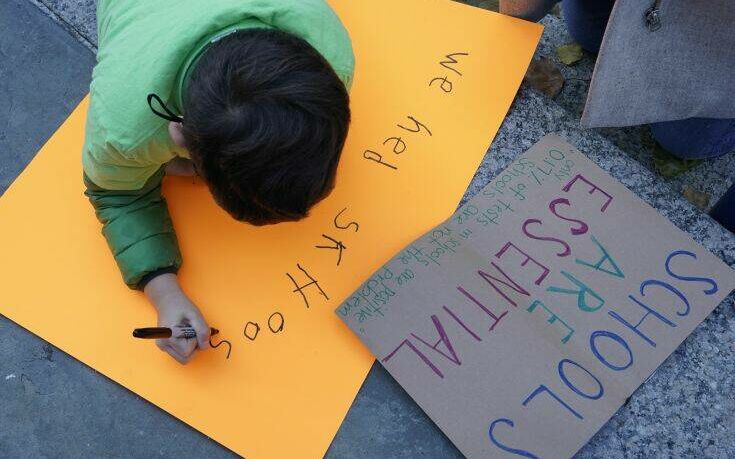 We hed skHoos
SCHOOLS
ARE
ESSENTIAL
Only
0.17% of tests in schools are positive
Schools are not the Problem